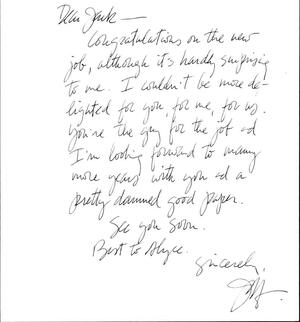 Dear Jack —
Congratulations on the new
job, although it's hardly surprising
to me. I couldn't be more de-
lighted for you, for me, for us.
You're the guy for the job +d
I'm looking forward to many
more years with you +d a
pretty damned good paper.
See you soon.
Best to Alyce.
Sincerely,